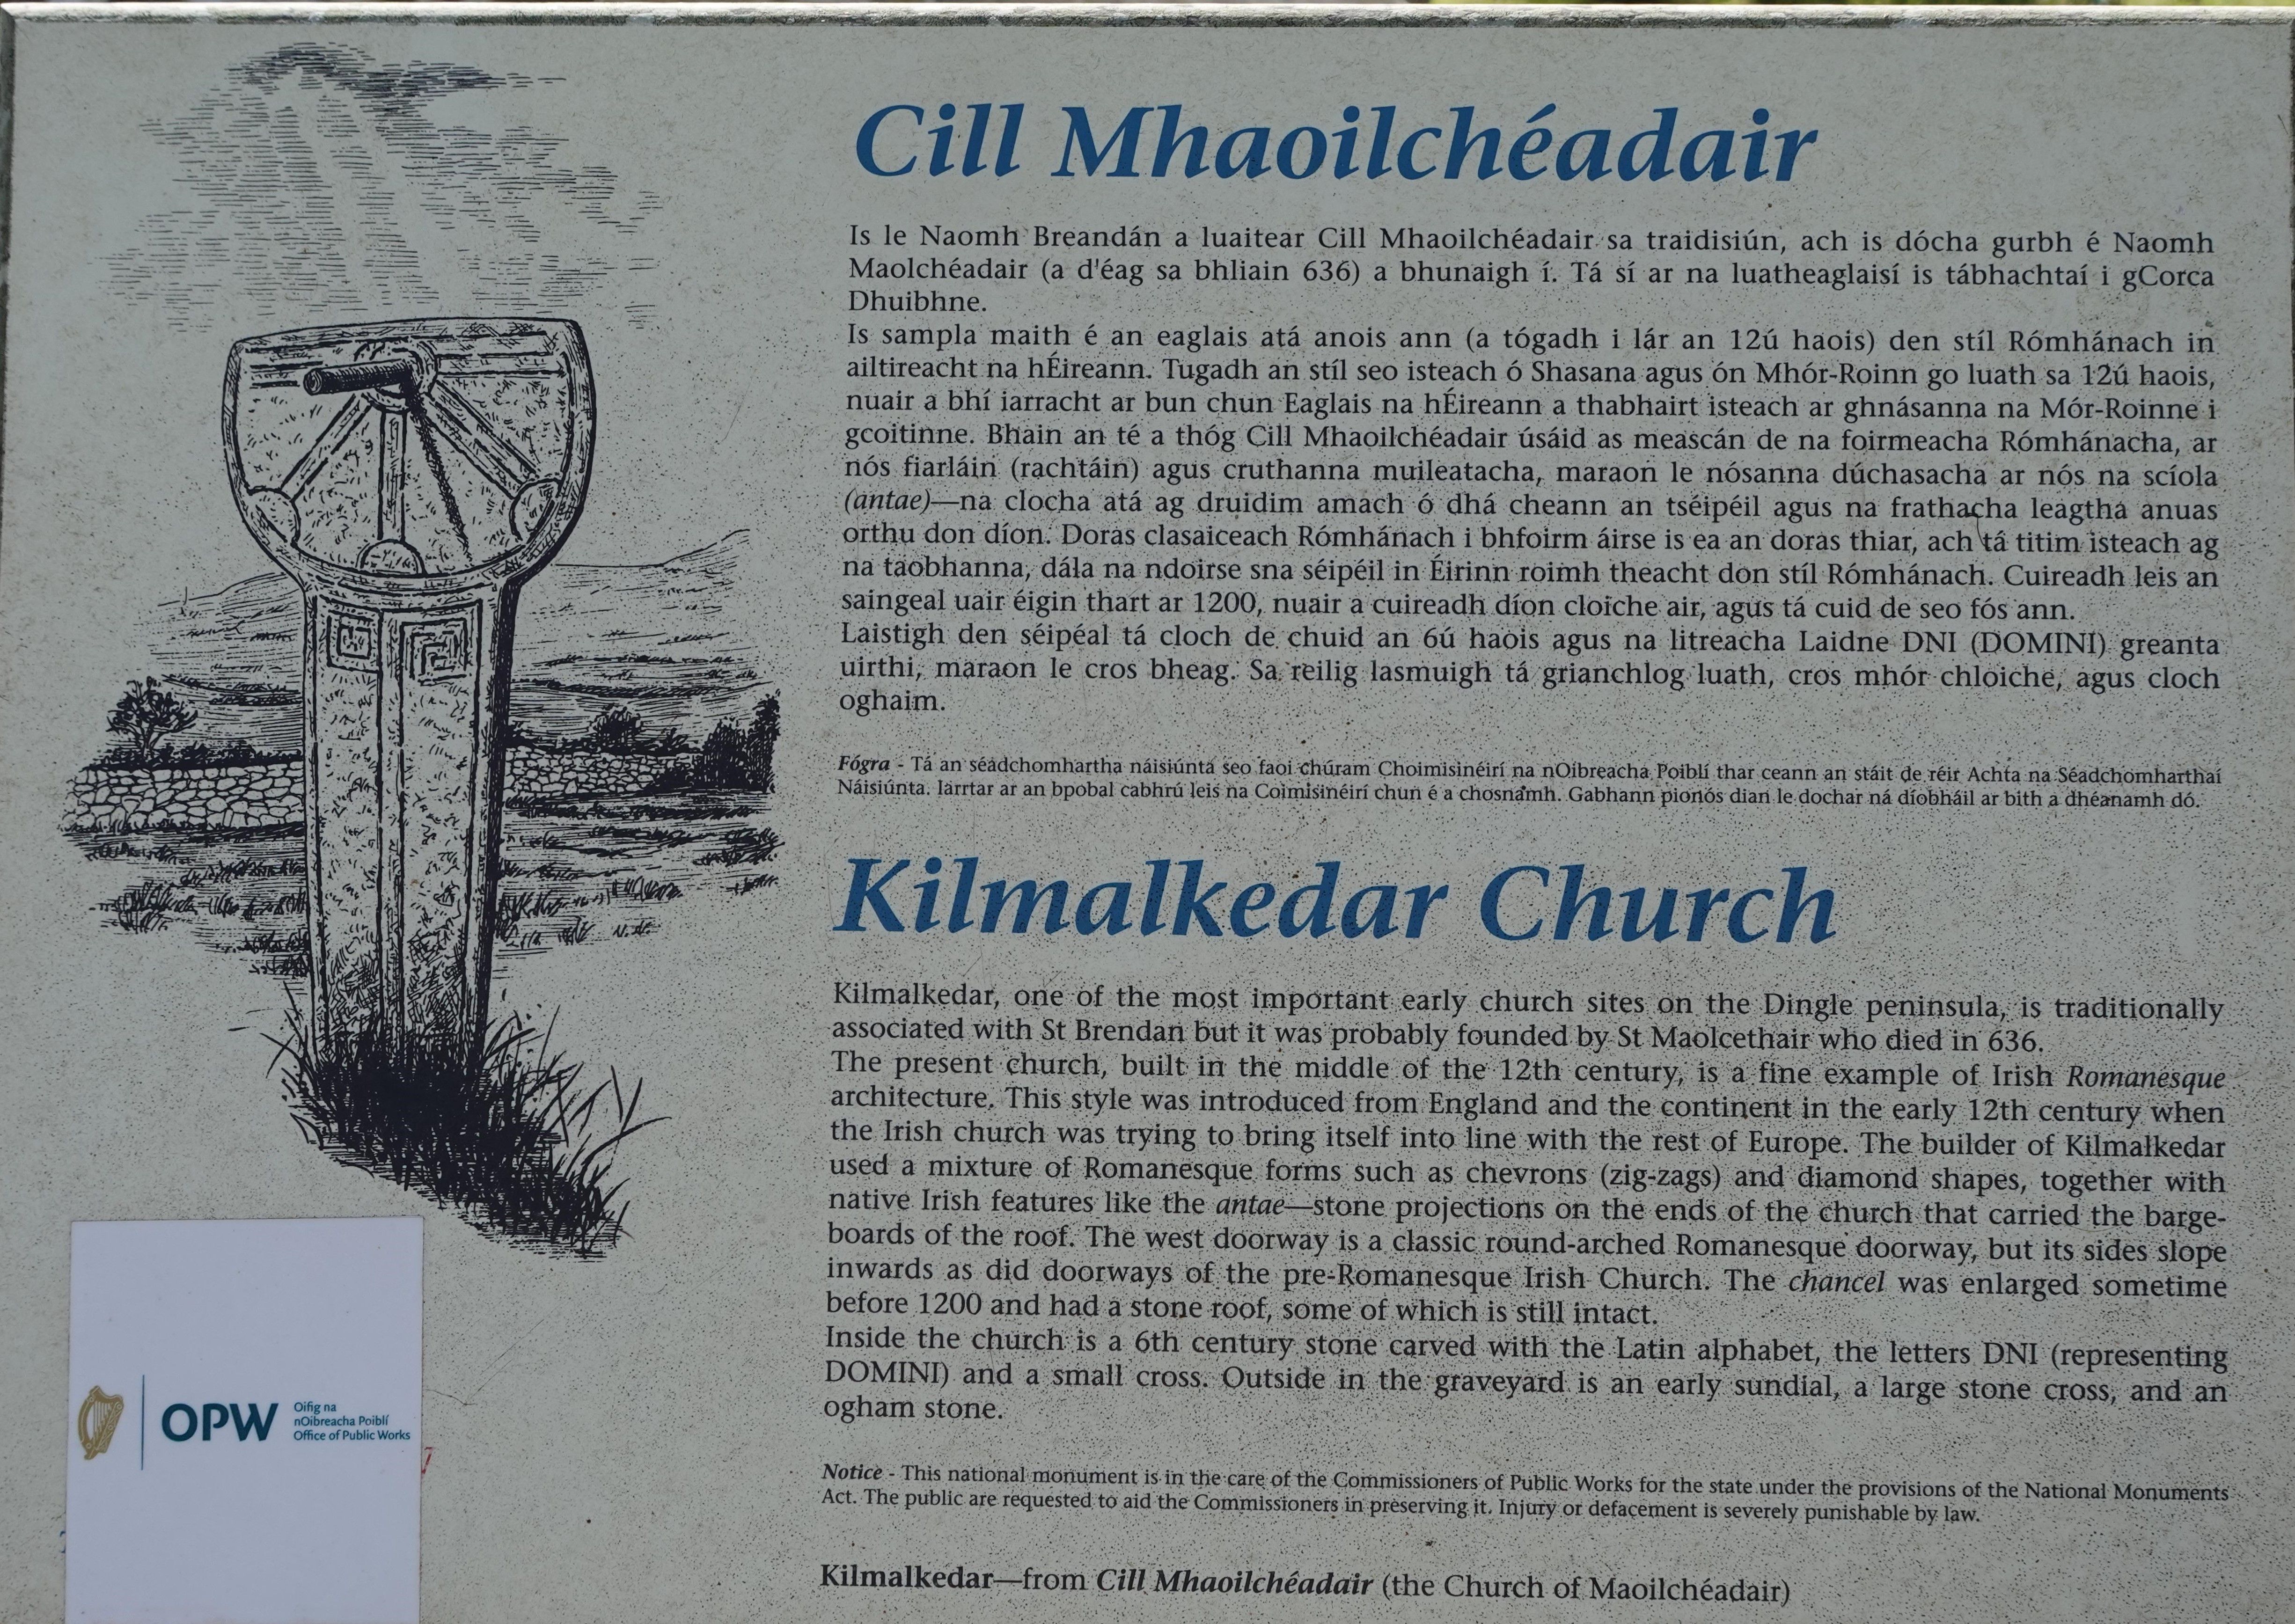 Cill Mhaoilchéadair
Is le Naomh Breandán a luaitear Cill Mhaoilchéadair sa traidisiún, ach is dócha gurbh é Naomh
Maolchéadair (a d'éag sa bhliain 636) a bhunaigh í. Tá sí ar na luatheaglaisí is tábhachtaí i gCorca
Dhuibhne.
Is sampla maith é an eaglais atá anois ann (a tógadh i lár an 12ú haois) den stíl Rómhánach in
ailtireacht na hÉireann. Tugadh an stíl seo isteach ó Shasana agus ón Mhór-Roinn go luath sa 12ú haois,
nuair a bhí iarracht ar bun chun Eaglais na hÉireann a thabhairt isteach ar ghnásanna na Mór-Roinne i
gcoitinne. Bhain an té a thóg Cill Mhaoilchéadair úsáid as meascán de na foirmeacha Rómhánacha, ar
nós fiarláin (rachtáin) agus cruthanna muileatacha, maraon le nósanna dúchasacha ar nós na scíola
(antae)—na clocha atá ag druidim amach ó dhá cheann an tséipéil agus na frathacha leagtha anuas
orthu don díon. Doras clasaiceach Rómhánach i bhfoirm áirse is ea an doras thiar, ach tá titim isteach ag
na taobhanna, dála na ndoirse sna séipéil in Éirinn roimh theacht don stíl Rómhánach. Cuireadh leis an
saingeal uair éigin thart ar 1200, nuair a cuireadh díon cloiche air, agus tá cuid de seo fós ann.
Laistigh den séipéal tá cloch de chuid an 6ú haois agus na litreacha Laidne DNI (DOMINI) greanta
uirthi, maraon le cros bheag. Sa reilig lasmuigh tá grianchlog luath, cros mhór chloiche, agus cloch
oghaim.
Fógra - Tá an séadchomhartha náisiúnta seo faoi chúram Choimisinéirí na nOibreacha Poiblí thar ceann an stáit de réir Achta na Séadchomharthaí
Náisiúnta. Iarrtar ar an bpobal cabhrú leis na Coimisinéirí chun é a chosnamh. Gabhann pionós dian le dochar ná díobháil ar bith a dhéanamh dó.
Kilmalkedar Church
Kilmalkedar, one of the most important early church sites on the Dingle peninsula, is traditionally
associated with St Brendan but it was probably founded by St Maolcethair who died in 636.
The present church, built in the middle of the 12th century, is a fine example of Irish Romanesque
architecture. This style was introduced from England and the continent in the early 12th century when
the Irish church was trying to bring itself into line with the rest of Europe. The builder of Kilmalkedar
used a mixture of Romanesque forms such as chevrons (zig-zags) and diamond shapes, together with
native Irish features like the antae—stone projections on the ends of the church that carried the barge-
boards of the roof. The west doorway is a classic round-arched Romanesque doorway, but its sides slope
inwards as did doorways of the pre-Romanesque Irish Church. The chancel was enlarged sometime
before 1200 and had a stone roof, some of which is still intact.
Inside the church is a 6th century stone carved with the Latin alphabet, the letters DNI (representing
DOMINI) and a small cross. Outside in the graveyard is an early sundial, a large stone cross, and an
ogham stone.
Notice - This national monument is in the care of the Commissioners of Public Works for the state under the provisions of the National Monuments
Act. The public are requested to aid the Commissioners in preserving it. Injury or defacement is severely punishable by law.
Kilmalkedar—from Cill Mhaoilchéadair (the Church of Maoilchéadair)
OPW
Oifig na
nOibreacha Poiblí
Office of Public Works